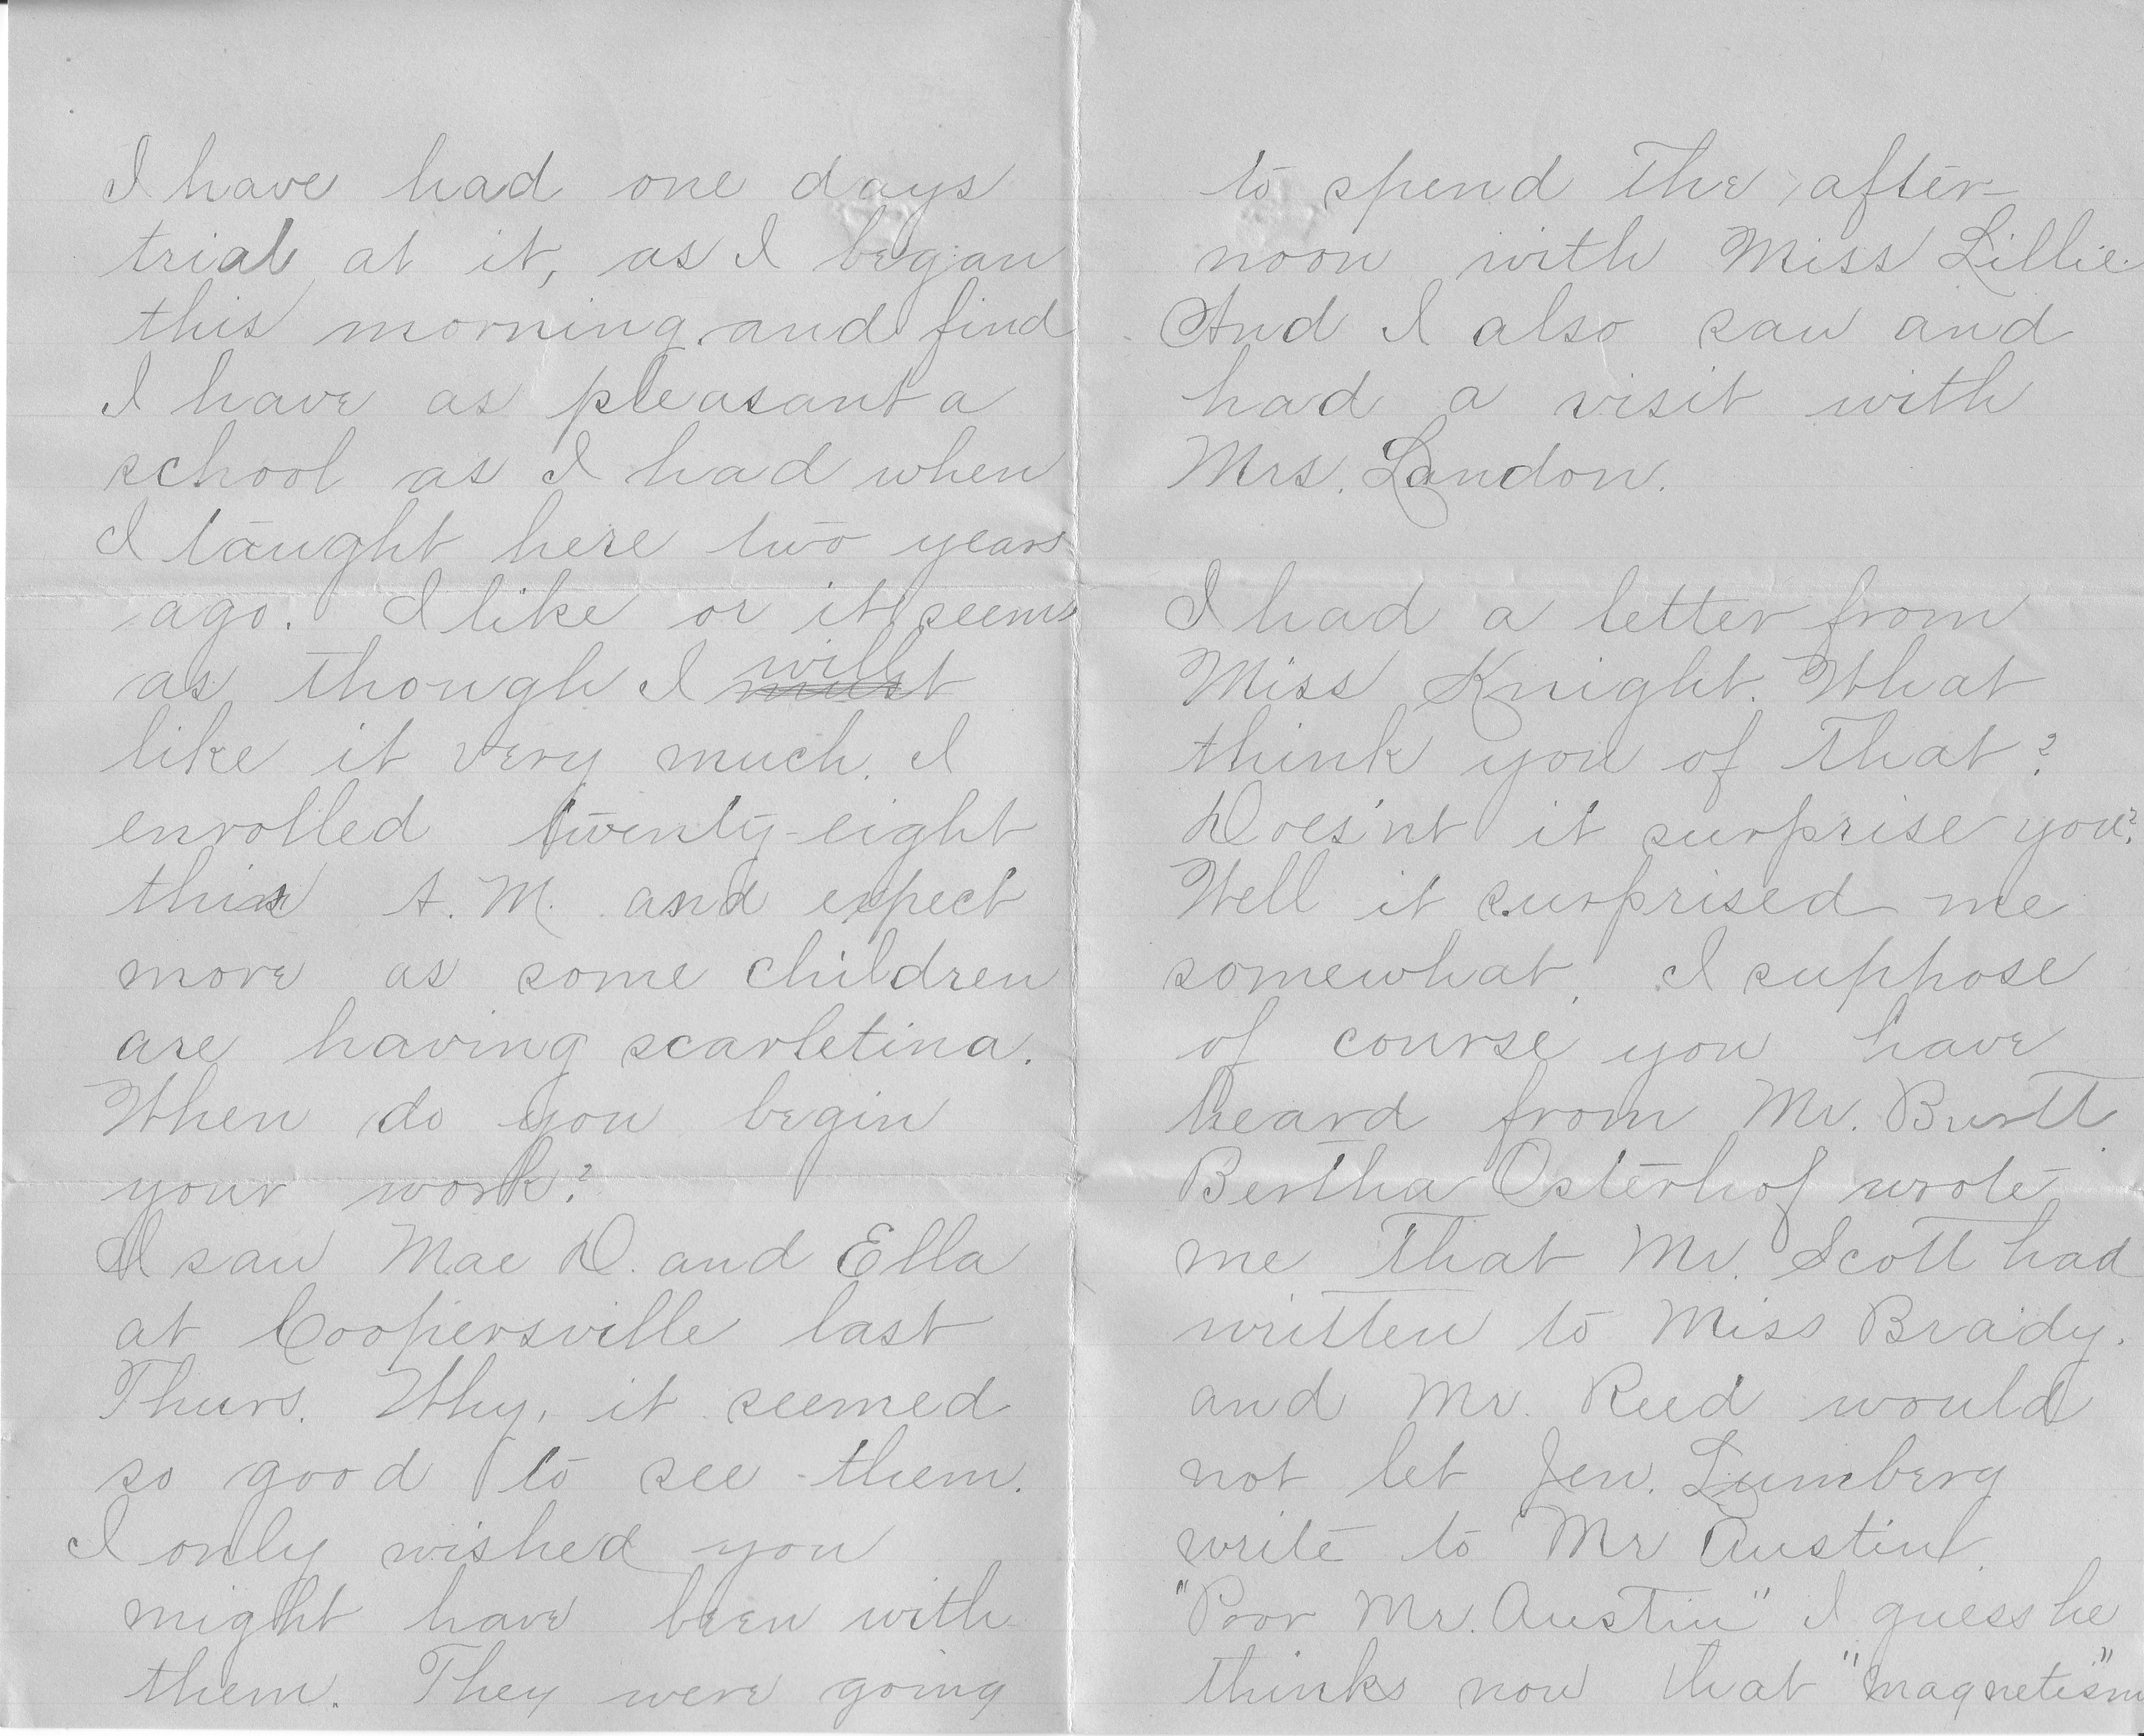 I have had one days
trial at it, as I began
this morning and find
I have as pleasant a
school as I had when
I taught here two years
ago. I like or it seems
as though I must will
like it very much. I
enrolled twenty-eight
this A. M. and expect
more as some children
are having scarletina.
When do you begin
your work?
I saw Mae D. and Ella
at Coopersville last
Thurs. Why, it seemed
so good to see them.
I only wished you
might have been with
them. They were going
to spend the after-
noon with Miss Lillie.
And I also saw and
had a visit with
Mrs. Landon.
I had a letter from
Miss Knight. What
think you of that?
Does'nt it surprise you?
Well it surprised me
somewhat. I suppose
of course you have
heard from Mr. Burtt.
Bertha Osterhof wrote
me that Mr. Scott had
written to Miss Brady.
and Mr. Reed would
not let Jen. Lumberg
write to Mr Austin.
"Poor Mr. Austin" I guess he
thinks now that "magnetism"